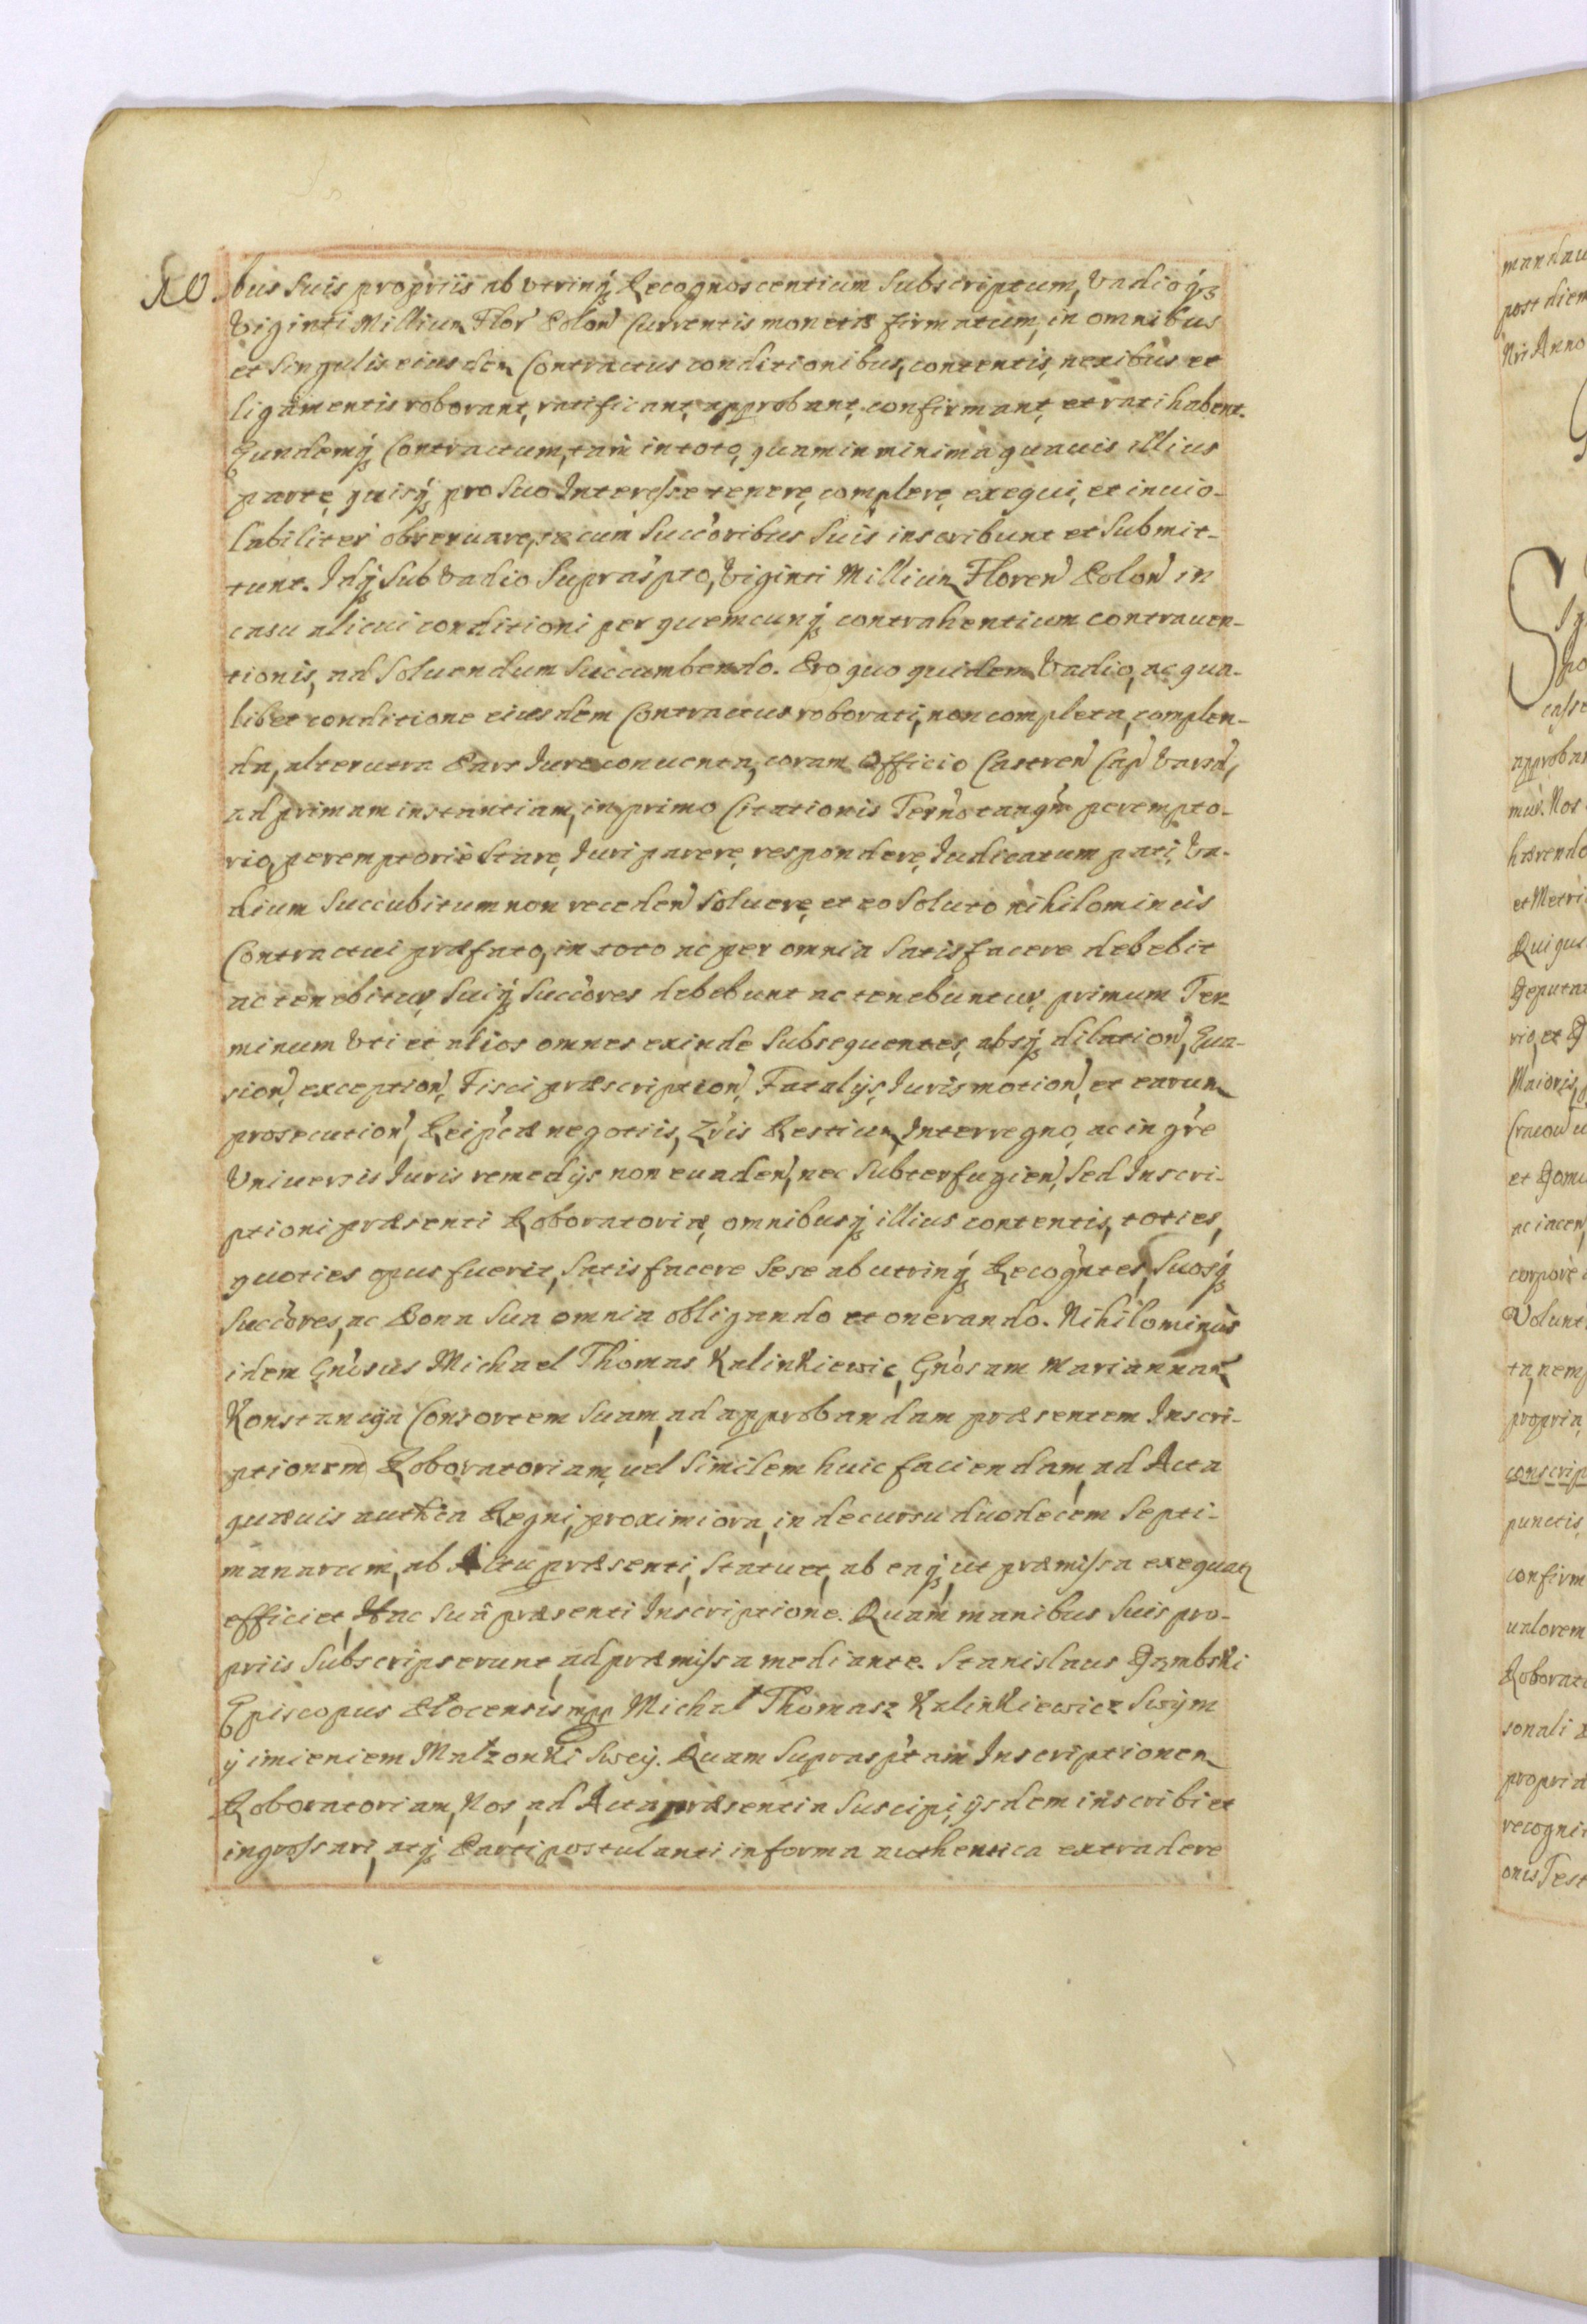 bus suis propriis ab vtrinq; Recognoscentium subscriptum, Vadioq;
Viginti Millium Flor Polon Currentis monetæ firmatum, in omnibus
et singulis eiusdem Contractus conditionibus, contentis, nexibus et
ligamentis roborant, ratificant, approbant, confirmant, et ratihabent.
Eundemq; Contractum, tam in toto, quam in minima quauis illius
parte, quisq; pro suo Interesse tenere, complere, exequi, et inuio-
labiliter obseruare, se cum Succ'oribus suis inscribunt et submit-
tunt. Idq; sub Vadio supras'pto, Viginti Millium Floren Polon in
casu alicui conditioni per quemcunq; contrahentium contrauen-
tionis, ad soluendum succumbendo. Pro quo quidem Vadio, ac qua-
libet conditione eiusdem Contractus roborati, non completa, complen-
da, alterutra Pars Iure conuenta, coram Officio Castren Cap Varsa,
ad primam instantiam, in primo Citationis Ter'no tanq'm perempto-
rio, peremptorie stare, Iuri parere, respondere, Iudicatum pati, Va-
dium succubitum non receden soluere, et eo soluto nihilominus
Contractui præfato, in toto ac per omnia satisfacere debebit
ac tenebitur, suiq; Succ'ores debebunt ac tenebuntur, primum Ter-
minum vti et alios omnes exinde subsequentes, absq; dilation, Eua-
sion, exception, Fisci præscription, Fatalijs, Iuris motion, et earum
prosecution, Reip'cæ negotiis, L'ris Restium, Interregno, ac in g're
Vniuersis Iuris remedijs non euaden, nec subterfugien, sed Inscri-
ptioni præsenti Roboratoriæ, omnibusq; illius contentis, toties,
quoties opus fuerit, satisfacere sese ab utrinq; Recog'ntes, suosq;
Succ'ores, ac Bona sua omnia obligando et onerando. Nihilominus
idem G'nosus Michael Thomas Kalinkiewic, G'nosam Mariannam
Konstancija Consortem suam, ad approbandam præsentem Inscri-
ptionem Roboratoriam, uel similem huic faciendam, ad Acta
quæuis auth'ca Regni, proximiora, in decursu duodecem septi-
manarum, ab Actu præsenti, statuet, ab eaq; ut præmissa exequat'
efficiet, Hac suâ præsenti Inscriptione. Quam manibus suis pro-
priis subscripserunt, ad præmissa mediante. Stanislaus Dąmbski
Episcopus Plocensis mpp Michał Thomasz Kalinkiewicz Swym
y imieniem Małzonki Swey. Quam supras'ptam Inscriptionem
Roboratoriam, Nos, ad Acta præsentia suscipi, ijsdem inscribi et
ingrossari, atq; Parti postulanti in forma authentica extradere